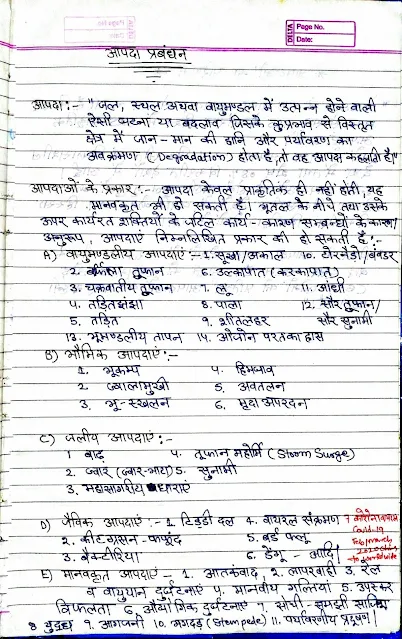 DELTA Page No.
Date:
आपदा प्रबंधन
आपदा :- "जल, स्थल अथवा वायुमण्डल में उत्पन्न होने वाली
ऐसी घटना या बदलाव जिसके कुप्रभाव से विस्तृत
क्षेत्र में जान-माल की हानि और पर्यावरण का
अवक्रमण (Degradation) होता है, तो वह आपदा कहलाती है।"
आपदाओं के प्रकार :- आपदा केवल प्राकृतिक ही नहीं होती, यह
मानवकृत भी हो सकती है। भूतल के नीचे तथा उसके
ऊपर कार्यरत शक्तियों के जटिल कार्य-कारण सम्बन्धों के कारण/
अनुरूप, आपदाएं निम्नलिखित प्रकार की हो सकती हैं :-
A) वायुमण्डलीय आपदाएं :- 1. सूखा/अकाल 10. टोरनेडो/बवंडर
2. तूफान 6. उल्कापात (करकापात)
3. चक्रवातीय तूफान 7. लू 11. आंधी
4. तड़ितझंझा 8. पाला 12. सौर तूफान/
5. तड़ित 9. शीतलहर सौर सुनामी
13. भूमण्डलीय तापन 14. ओजोन परत का ह्रास
B) भौमिक आपदाएं :-
1. भूकम्प 4. हिमघाव
2. ज्वालामुखी 5. अवतलन
3. भू-स्खलन 6. मृदा अपरदन
C) जलीय आपदाएं :-
1 बाढ़ 4. तूफान महोर्मि (Storm Surge)
2. ज्वार (ज्वार-भाटा) 5. सुनामी
3. महासागरीय धाराएं
D) जैविक आपदाएं :- 1. टिड्डी दल 4. वायरल संक्रमण 7 कोरोनावायरस
Covid-19
2. कीट ग्रासन-फफूंद 5. बर्ड फ्लू Feb/march
3. बैक्टीरिया 6. डेंगू - आदि।
to worldwide
E) मानवकृत आपदाएं - 1. आतंकवाद, 2. लापरवाही 3. रेल
व वायुयान दुर्घटनाएं 4. मानवीय गलतियां 5. उपस्कर
विफलता 6. औद्योगिक दुर्घटनाएं 7. सोची-समझी साजिश
8 युद्ध 9. आगजनी 10. भगदड़ (Stampede) 11. पर्यावरणीय प्रदूषण।